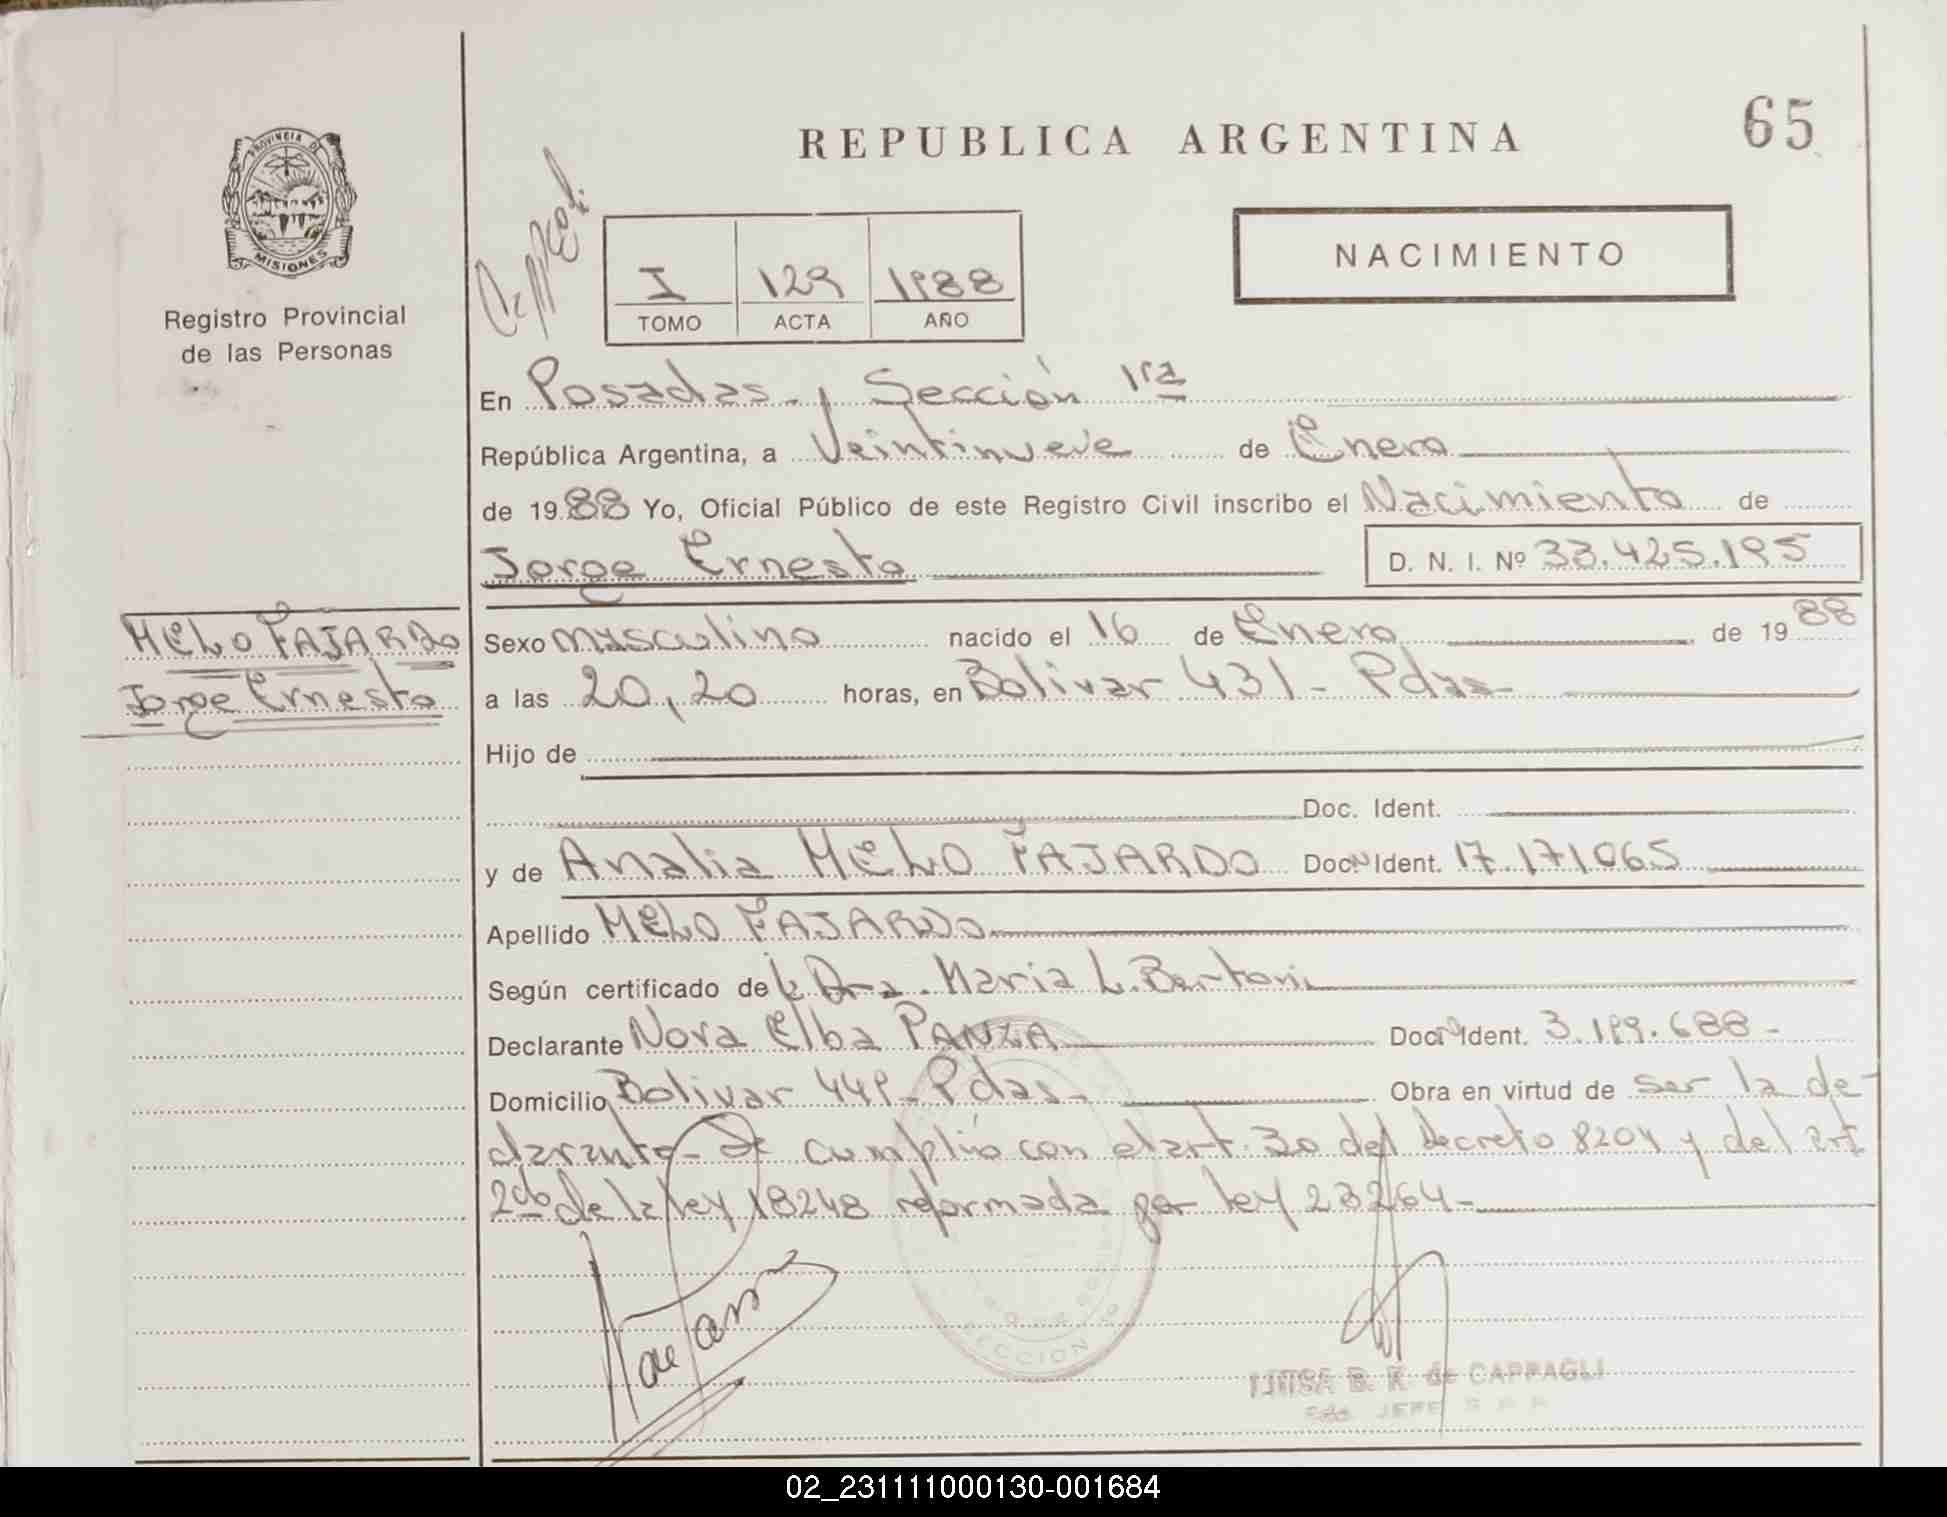 REPUBLICA ARGENTINA
65
PROVINCIA DE
MISIONES
Registro Provincial
de las Personas
NACIMIENTO
I 129 1988
TOMO ACTA AÑO
En Posadas - , Sección 1ra
República Argentina, a Veintinueve de Enero
de 1988 Yo, Oficial Público de este Registro Civil inscribo el Nacimiento de
Jorge Ernesto D. N. I. Nº 33.425.195
MELO FAJARDO
Jorge Ernesto
Sexo masculino nacido el 16 de Enero de 1988
a las 20,20 horas, en Bolivar 431 - Pdas
Hijo de
Doc. Ident.
y de Analia MELO FAJARDO Doc. Ident. 17.171065
Apellido MELO FAJARDO
Según certificado de la Dra. Maria L. Bertoni
Declarante Nora Elba PANZA Doc. Ident. 3.199.688 -
Domicilio Bolivar 449 - Pdas - Obra en virtud de ser la de-
clarante - Se cumplió con el art. 30 del decreto 8204 y del art
2do de la ley 18248 reformada por ley 23264 -
SECCION
LUISA B. K. de CAPPAGLI
JEFE
02_231111000130-001684